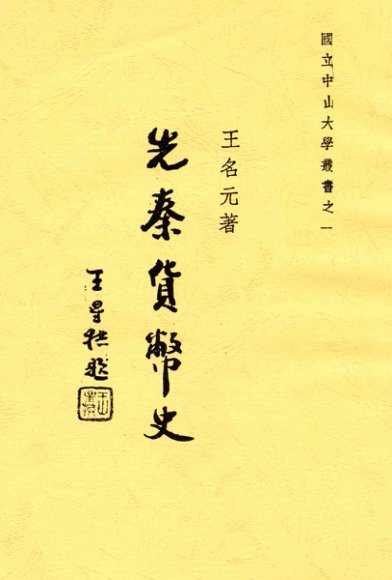 國立中山大學叢書之一
王名元著
先秦貨幣史
王星拱題